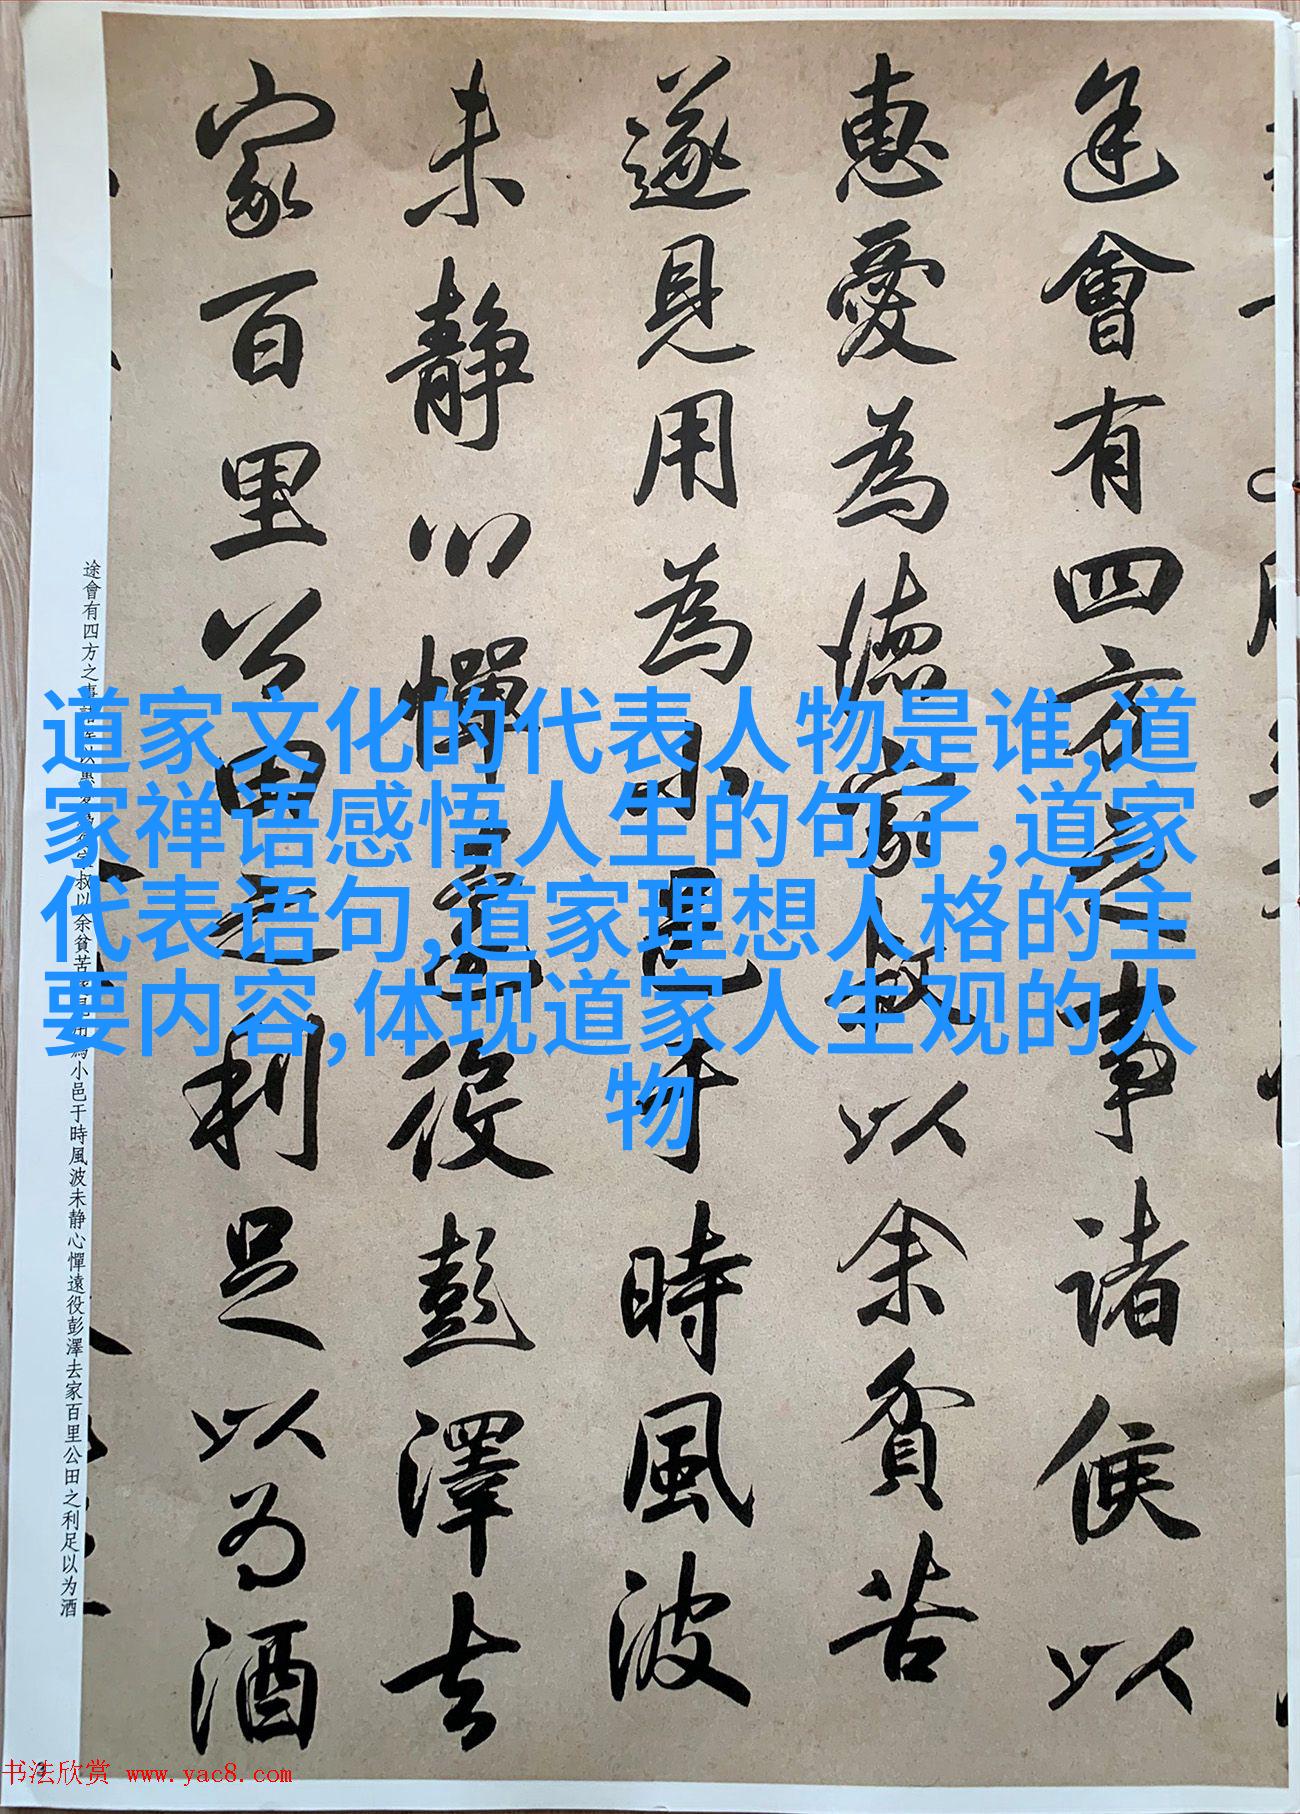 途會有四方之事諸侯以
惠愛為德家叔以余貧苦
遂見用為小邑于時風波
未静心憚遠役彭澤去
家百里公田之利足以為酒
途會有四方之事諸侯以惠愛為德家叔以余貧苦遂見用為小邑于時風波未静心憚遠役彭澤去家百里公田之利足以为酒
道家文化的代表人物是谁,道
家禅语感悟人生的句子,道家
代表语句,道家理想人格的主
要内容,体现道家人生观的人
物
书法欣赏 www.yac8.com